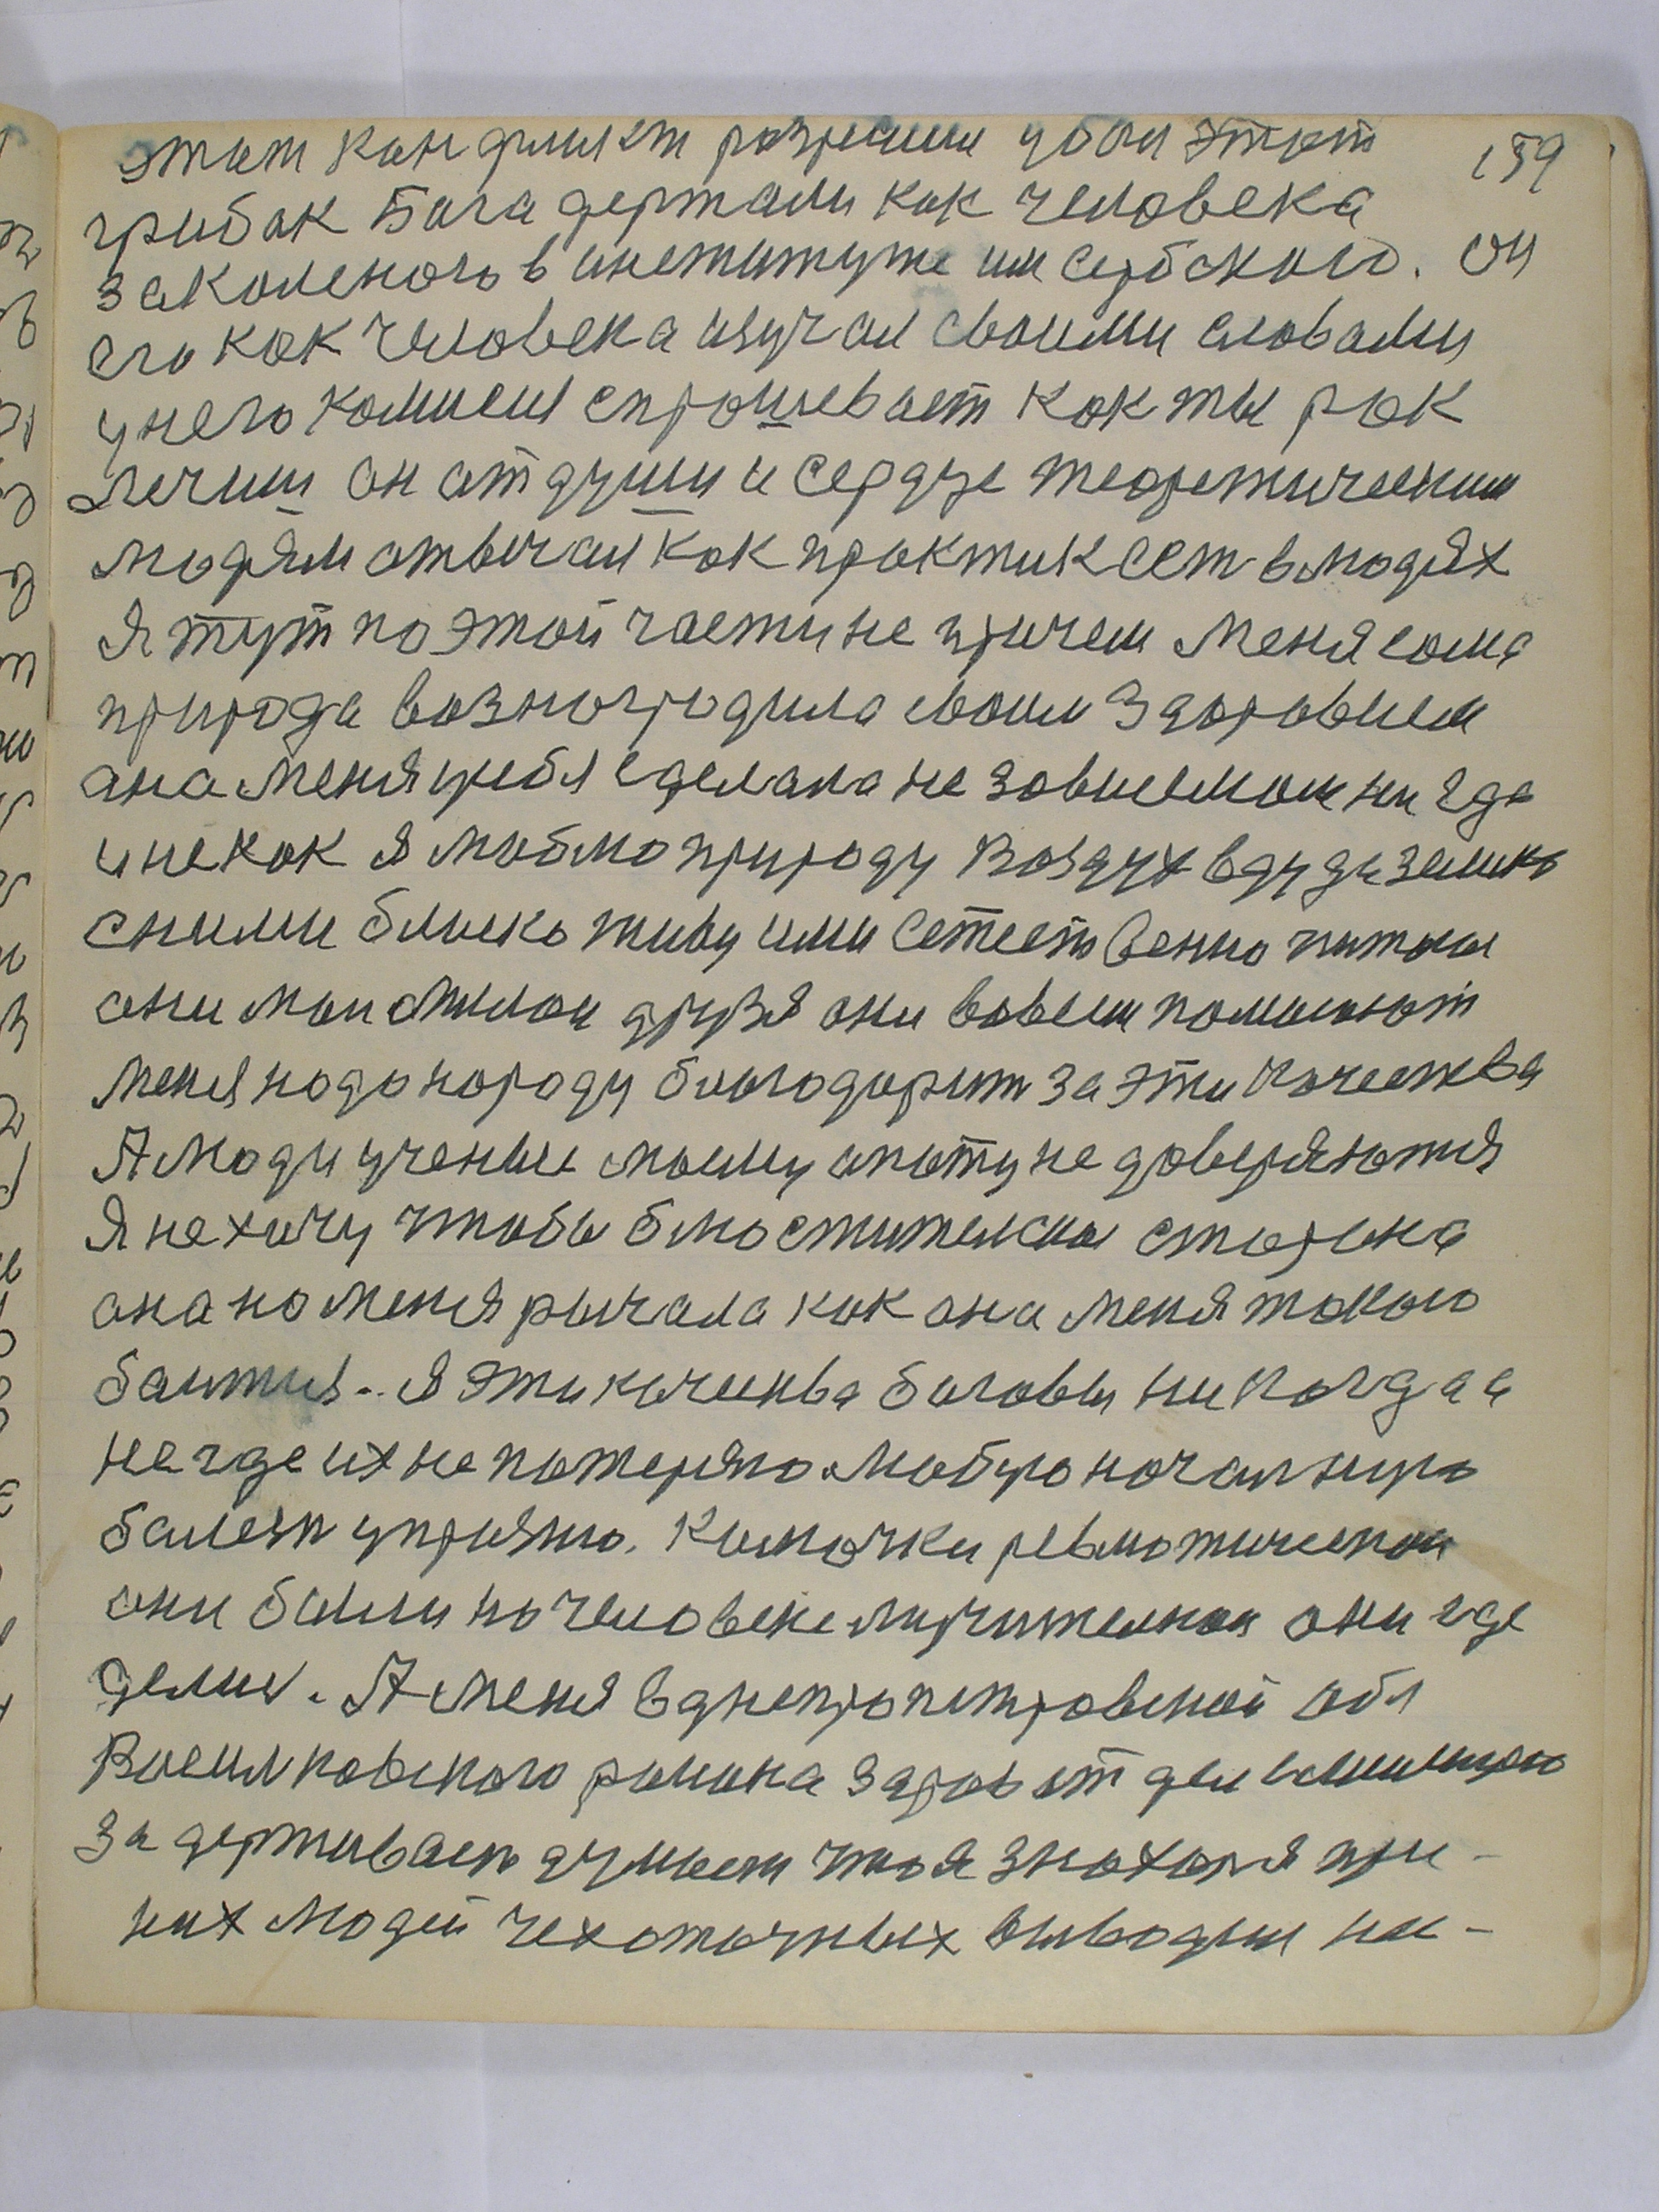 159
этот канфликт разрешил убои этот
грибок Бога держали как человека
закаленого в инститте им Сербского. он
его как человека изучал своими словами
унего комисия спрошевает как ты рак
лечиш он отдуши и сердце теоретическим
людям отвечал как практик сет в людях
Я тут поэтой части не причем меня сама
природа вазноградила своим здоровием
ана меня цебя сделала не зависемом ни где
и некак я люблю природу Воздух воду да землю
сними блиско живу ими сетественно питаюс
они мои милои друзя они вовсем помогают
меня надо народу благодарит за эти качества
А люди ученые моему опыту не доверяются
Я не хочу чтобы блюстителная сторона
она на меня рычала как она меня такого
баится.. я эти качества боговы никогда а
не где их не потеряю любую началную
балезн упрязню. Кимочки ревмотическои
они были на человеке мучителнои они где
делис. А меня в днепропетровской обл
Василковского раиона здравотдел смилициею
задерживает думает что я знахоря при-
них людей чехоточных выводил на-